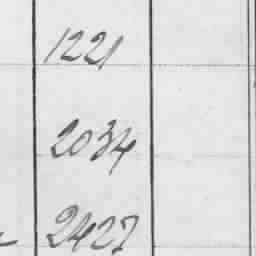 1221
2034
2427